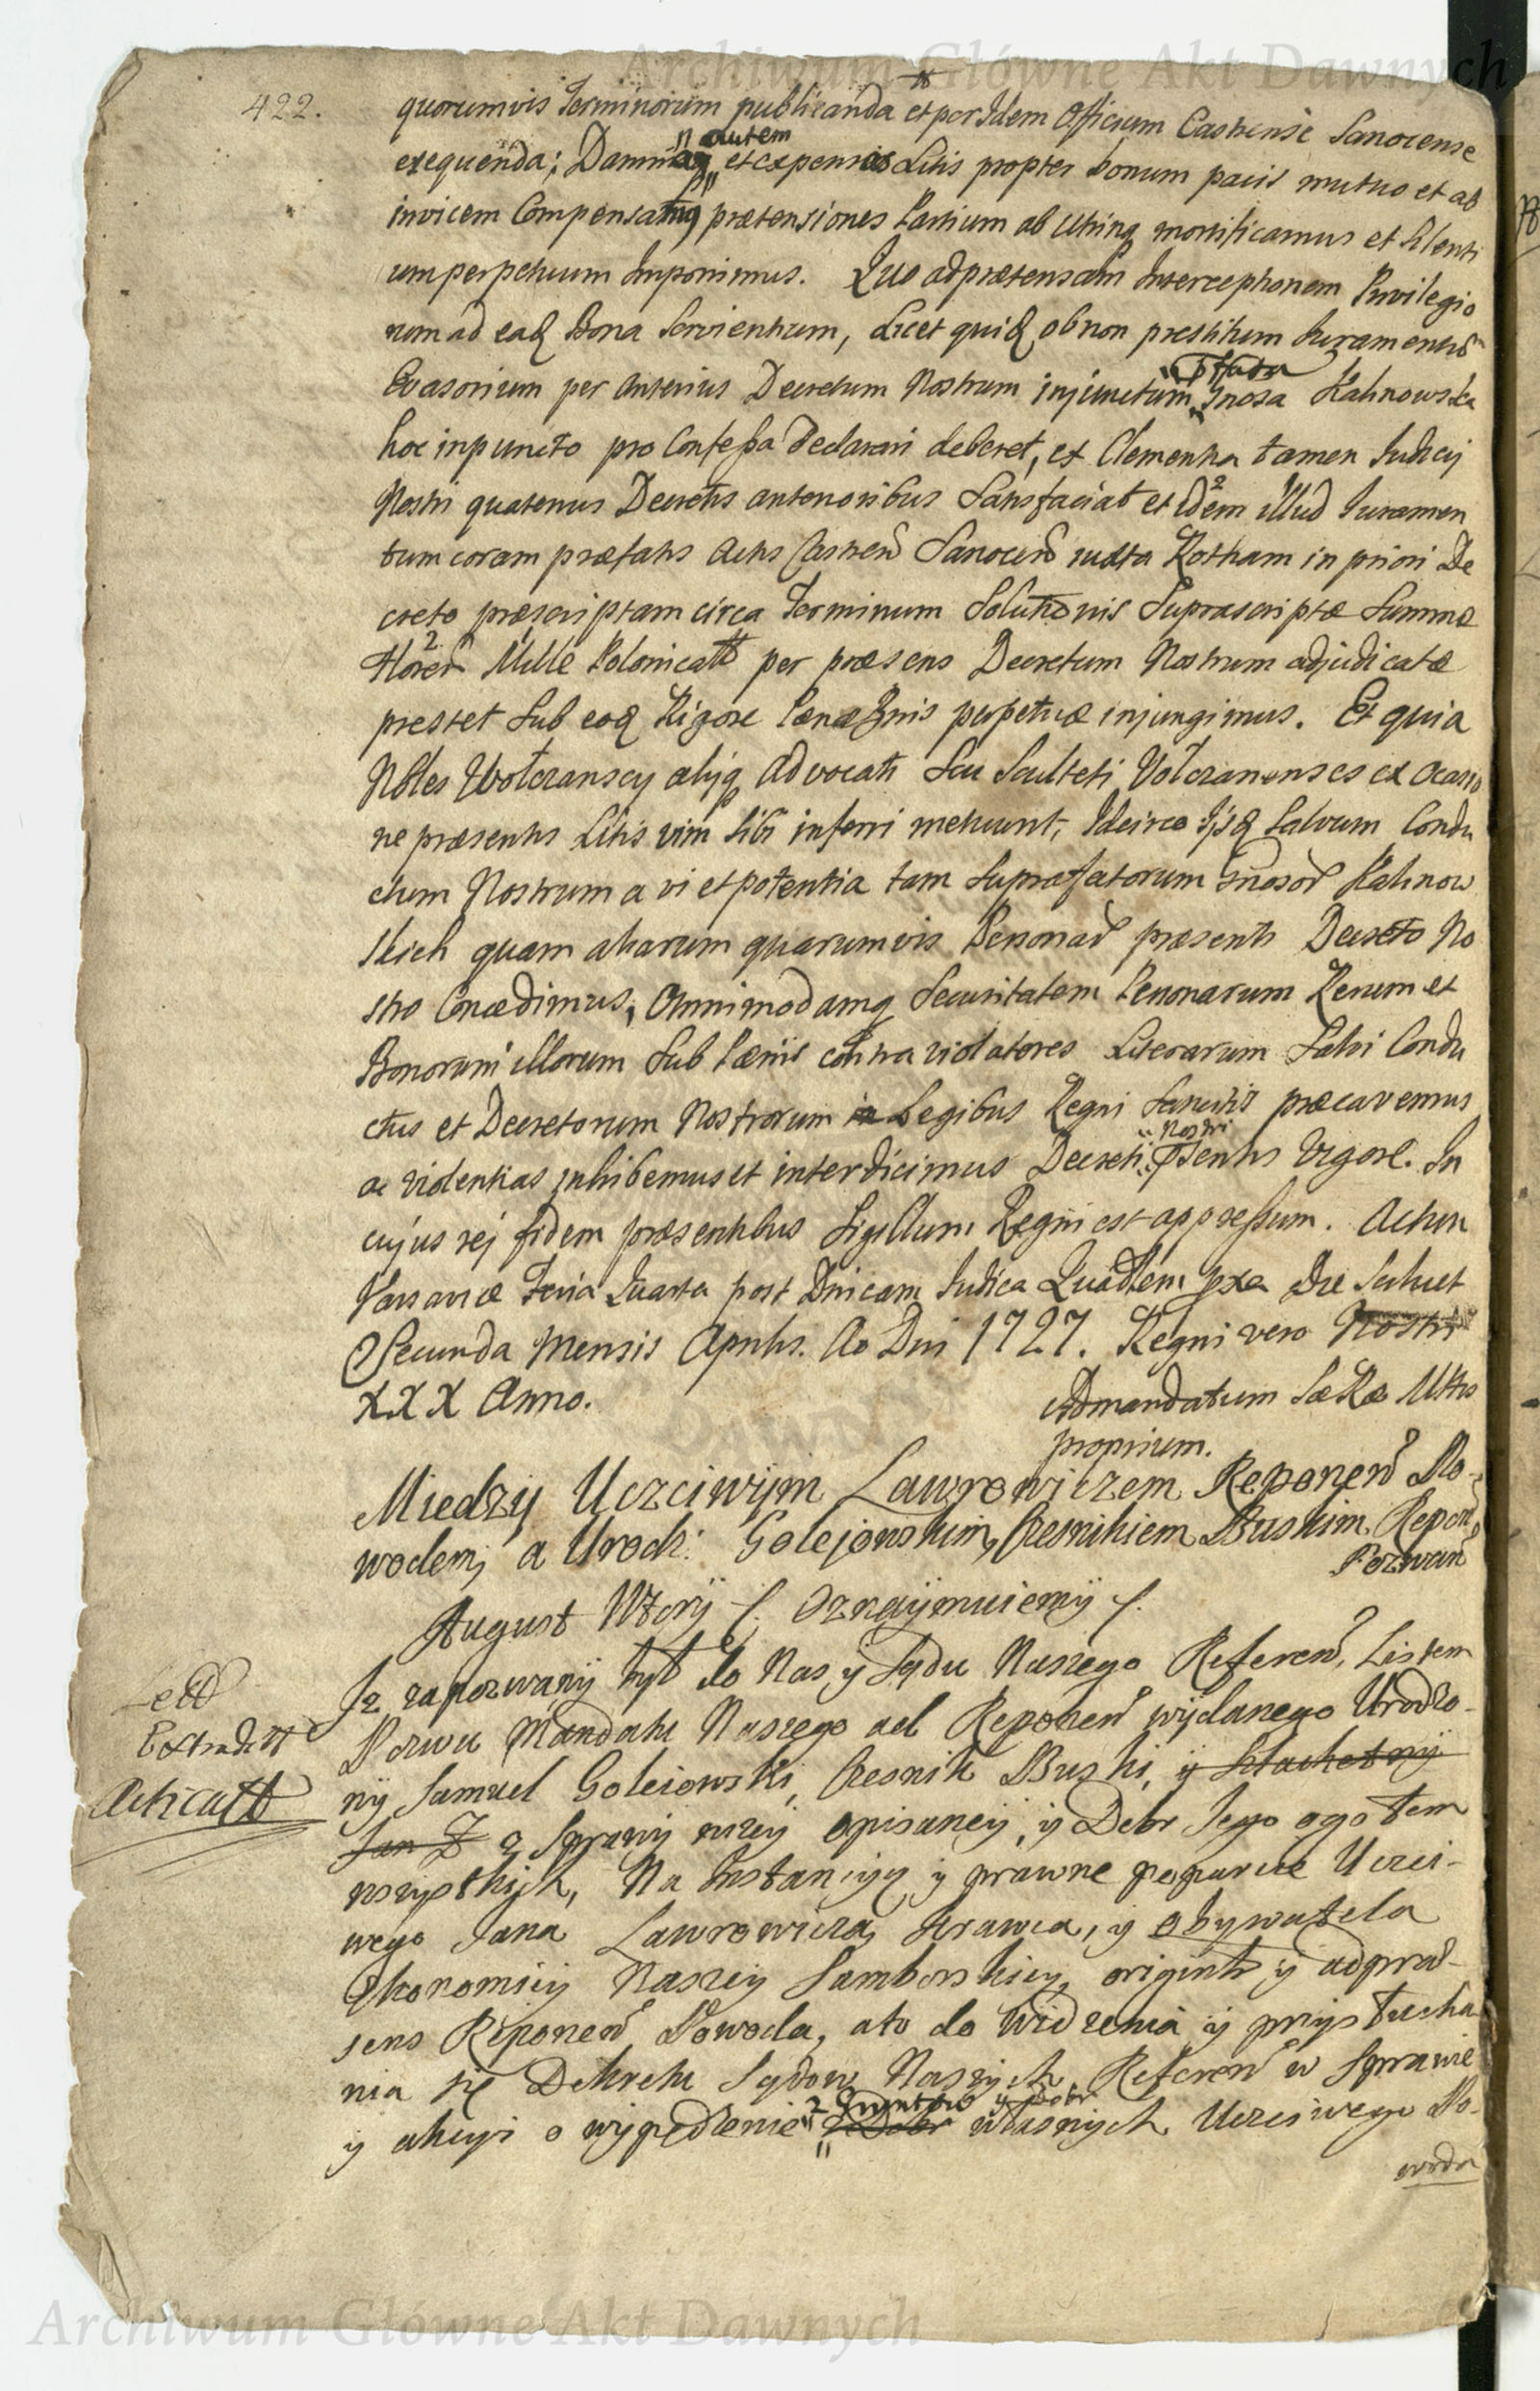 Archiwum Główne Akt Dawnych
422.
quorumvis Terminorum publicanda et per Idem Officium Castrense Sanocense
exequenda; Damna autem et expensas Litis propter bonum pacis mutuo et ab
invicem Compensamus prætensiones Partium ab utrinq mortificamus et Silenti
um perpetuum Imponimus. Quo ad prætensam Interceptionem Privilegio
rum ad eaq Bona Servientium, Licet quiq ob non prestitum Juramentū
Evasorium per Anterius Decretum Nostrum injunctum Gnosa Kalinowska
hoc in puncto pro Confessa declarari deberet, ex Clementia tamen Judicij
Nostri quatenus Decretis anterioribus Satisfaciat et Idem illud Juramen
tum coram præfatis Actis Castren Sanocen juxta Rotham in priori De
creto præscriptam circa Terminum Solutionis Suprascriptæ Summæ
Floren Mille Polonicalt per præsens Decretum Nostrum adjudicatæ
prestet Sub eoq Rigore Pænæ Bnis perpetuæ injungimus. Et quia
Nbles Wolczanscy alijq Advocati Seu Sculteti Volczanenses ex Ocasio
ne præsentis Litis vim Sibi inferri metuunt, Idcirco Ijsq Salvum Condu
ctum Nostrum a vi et potentia tam Suprafatorum Gnosor Kalinow
skich quam aliarum quarumvis Personar præsenti Decreto No
stro Concedimus, Omnimodamq Securitatem Personarum Rerum et
Bonorum illorum Sub Pænis contra violatores Literarum Salvi Condu
ctus et Decretorum Nostrorum in Legibus Regni Sancitis præcavemus
ac violentias inhibemus et interdicimus Decreti Nostri Psentis Vigore. In
cujus rej fidem præsentibus Sigillum Regni est appressum. Actum
Varsaviæ Feria Quarta post Dnicam Judica Quadlem pxa Die Scilicet
Secunda Mensis Aprilis. Ao Dni 1727. Regni vero Nostri
XXX Anno.
Ad mandatum Sæ Ræ Mttis
proprium.
Miedzy Uczciwym Lawrowiczem Reponen Po-
wodem, a Urodz: Golejowskim, Czesnikiem Buskim Repon
Pozwan
August Wtory f. Oznaymuiemy f.
Iz zapozwany był do Nas y Sądu Naszego Referen, Listem
Pozwu Mandatu Naszego ad Reponen wydanego Urodzo-
ny Samuel Goleiowski, Czesnik Buski, y Szlachetny
Jan Z z Sprawy nizey opisaney, y Dobr Jego ogołem
wszystkich, Na Instancyą y prawne poparcie Uczci-
wego Jana Lawrowicza, krawca, y obywatela
Ekonomiey Naszey Samborskiey, originti y adpræ-
sens Reponen Powoda, a to do widzenia y przysłucha
nia się Dekretu Sądow Naszych Referen w Sprawie
y akcyi o wypędzenie z Gruntow y Dobr z Dobr własnych Uczciwego Po-
woda
Extradit
Acticatt
Archiwum Główne Akt Dawnych